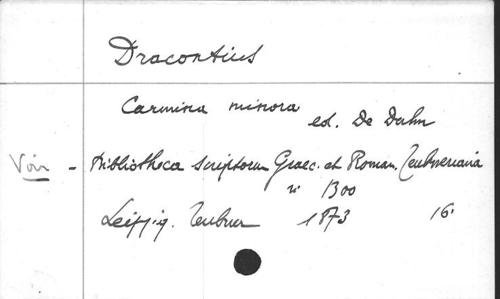 Dracontius
Carmina minora
ed. De Duhn
Voir - Bibliotheca scriptorum Graec. et Roman. Teubneriana
n° 1300
Leipzig. Teubner 1873 16°